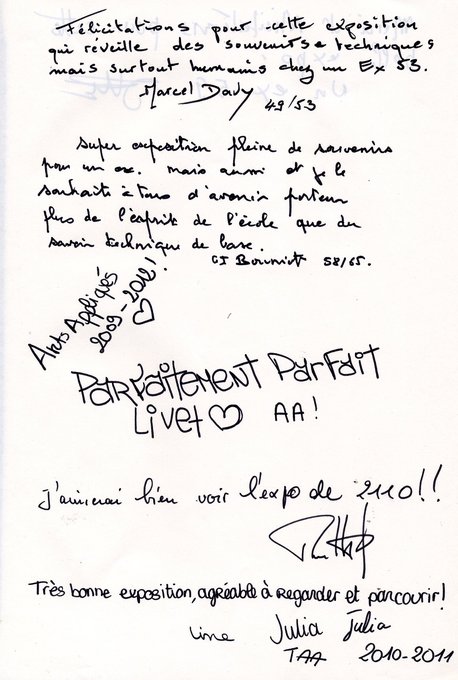 Félicitations pour cette exposition
qui réveille des souvenirs techniques
mais surtout humains chez un Ex 53.
Marcel Davy 49/53
Super exposition pleine de souvenirs
pour un ex. mais aussi et je le
souhaite à tous d'avenir porteur
plus de l'esprit de l'école que du
savoir technique de base.
58/65.
Arts Appliqués
2009-2012! ♡
PARFAITEMENT PARFAIT
LIVET ♡ AA!
J'aimerai bien voir l'expo de 2110!!
Très bonne exposition, agréable à regarder et parcourir!
Line Julia Julia
TAA 2010-2011